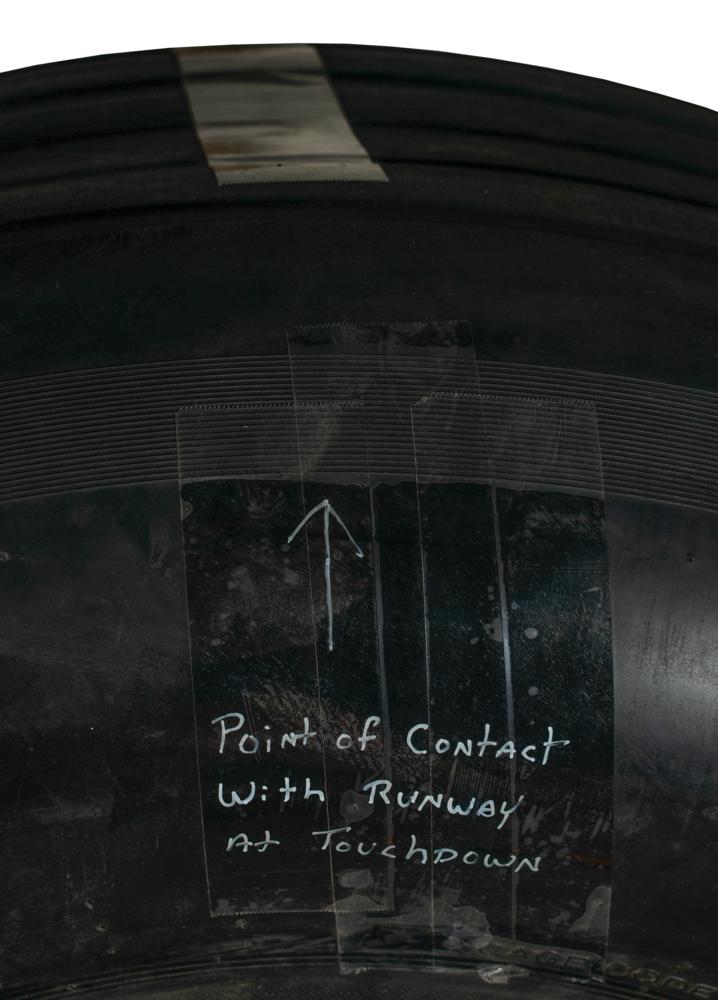 Point of Contact
With Runway
At Touchdown
CAGE CODE